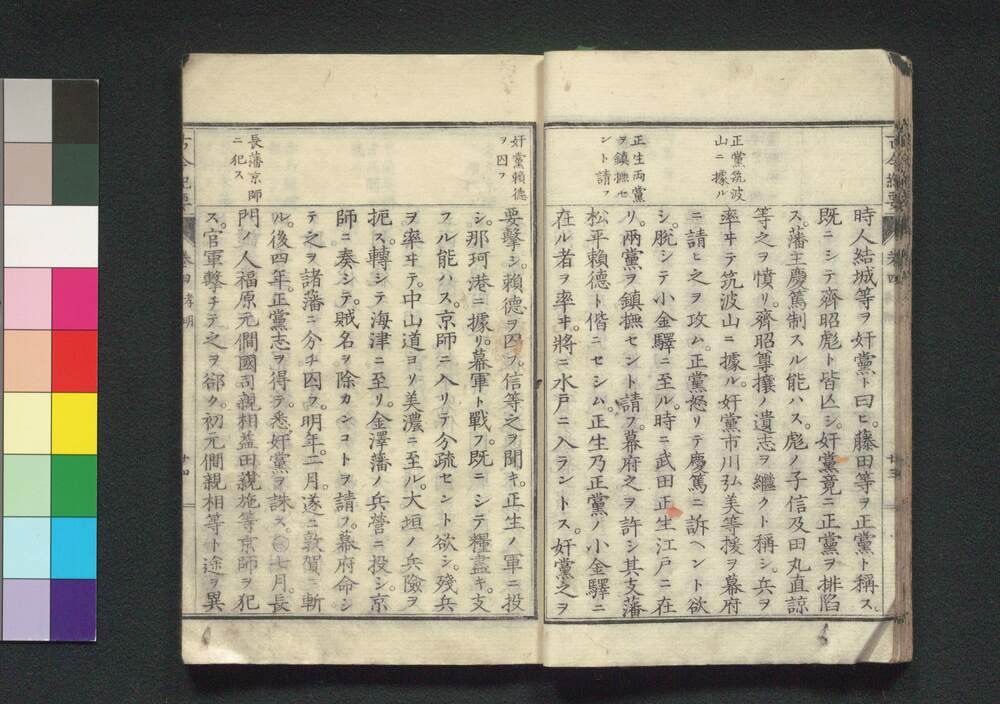 正黨筑波
山ニ據ル
正生両黨
ヲ鎮撫セ
ント請フ
時人結城等ヲ奸黨ト曰ヒ。藤田等ヲ正黨ト稱ス。
既ニシテ齊昭彪ト皆亾シ。奸黨竟ニ正黨ヲ排陷
ス。藩主慶篤制スル能ハス。彪ノ子信及田丸直諒
等之ヲ憤リ。齊昭尊攘ノ遺志ヲ繼クト稱シ。兵ヲ
率ヰテ筑波山ニ據ル。奸黨市川弘美等援ヲ幕府
ニ請ヒ之ヲ攻ム。正黨怒リテ慶篤ニ訴ヘント欲
シ。脱シテ小金驛ニ至ル。時ニ武田正生江戸ニ在
リ。兩黨ヲ鎮撫セント請フ。幕府之ヲ許シ其支藩
松平賴德ト偕ニセシム。正生乃正黨ノ小金驛ニ
在ル者ヲ率ヰ。將ニ水戸ニ入ラントス。奸黨之ヲ
奸黨賴德
ヲ囚フ
長藩京師
ニ犯ス
要擊シ。賴德ヲ囚フ。信等之ヲ聞キ。正生ノ軍ニ投
シ。那珂港ニ據リ。幕軍ト戰フ。既ニシテ糧盡キ。支
フル能ハス。京師ニ入リテ分疏セント欲シ。殘兵
ヲ率ヰテ。中山道ヨリ美濃ニ至ル。大垣ノ兵險ヲ
扼ス。轉シテ海津ニ至リ。金澤藩ノ兵營ニ投シ。京
師ニ奏シテ。賊名ヲ除カンコトヲ請フ。幕府命シ
テ之ヲ諸藩ニ分チ囚フ。明年。二月。遂ニ敦賀ニ斬
ル。後四年。正黨志ヲ得テ。悉奸黨ヲ誅ス。○七月。長
門ノ人福原元僴國司親相益田親施等京師ヲ犯
ス。官軍擊チテ之ヲ郤ク。初元僴親相等ト途ヲ異
古今紀要
卷四 孝明
廿四